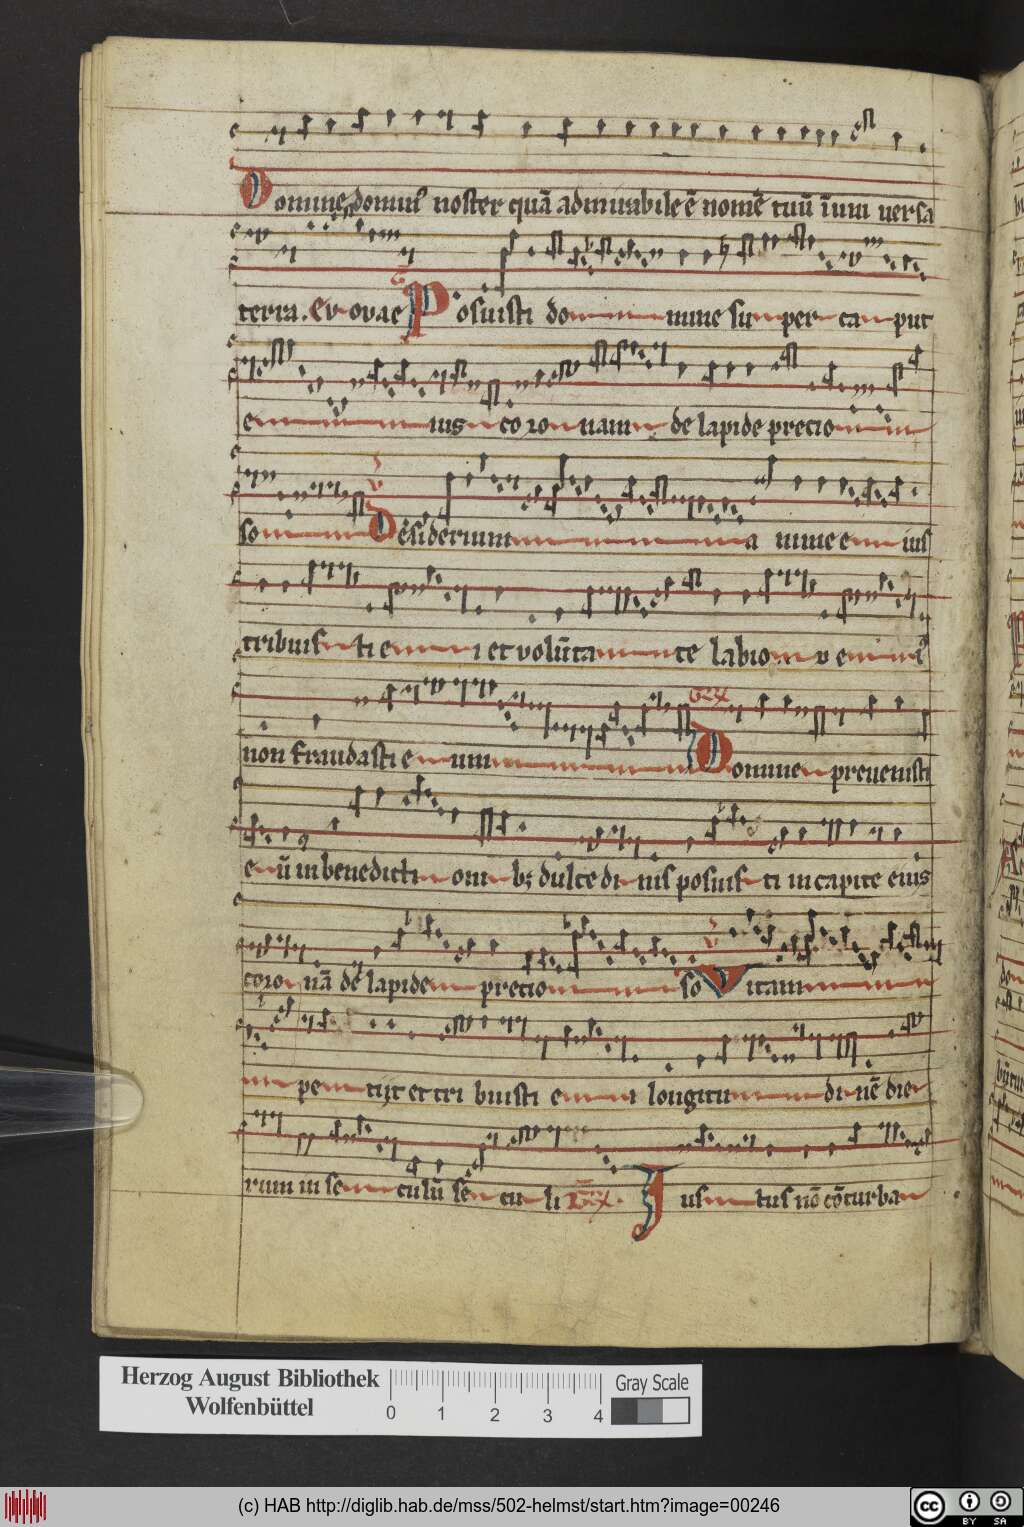 Domine domin' noster quā admirabile ē nomē tuū ī uni versa
terra. Ev ovae Posuisti do mine su per ca put
e ius co ro nam de lapide precio
so Desiderium a nime e ius
tribuis ti e i et volūta te labio r e
non fraudasti e um Domine prevenisti
e ū in benedicti oni b; dulce di nis posuis ti in capite eius
coro nā de lapide precio so Vitam
pe tijt et tri buisti e i longitu di nē die
rum in se culū se cu li Ius tus nō cōturba
Herzog August Bibliothek
Wolfenbüttel
0 1 2 3 4
Gray Scale
(c) HAB http://diglib.hab.de/mss/502-helmst/start.htm?image=00246
cc BY SA